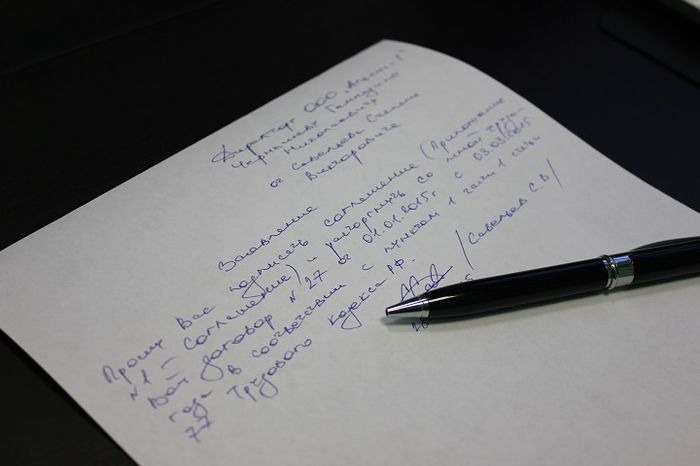 Директору ООО „Апельс-Р"
Чернышеву Геннадию
Николаевичу
от Савельева Степана
Викторовича
Заявление
Прошу Вас подписать соглашение (Приложение
№1 - Соглашение) и расторгнуть со мной трудо-
вой договор №27 от 01.01.2015г. с 03.03.2015
года в соответствии с пунктом 1 части 1 статьи
77 Трудового кодекса РФ.
/Савельев С.В/